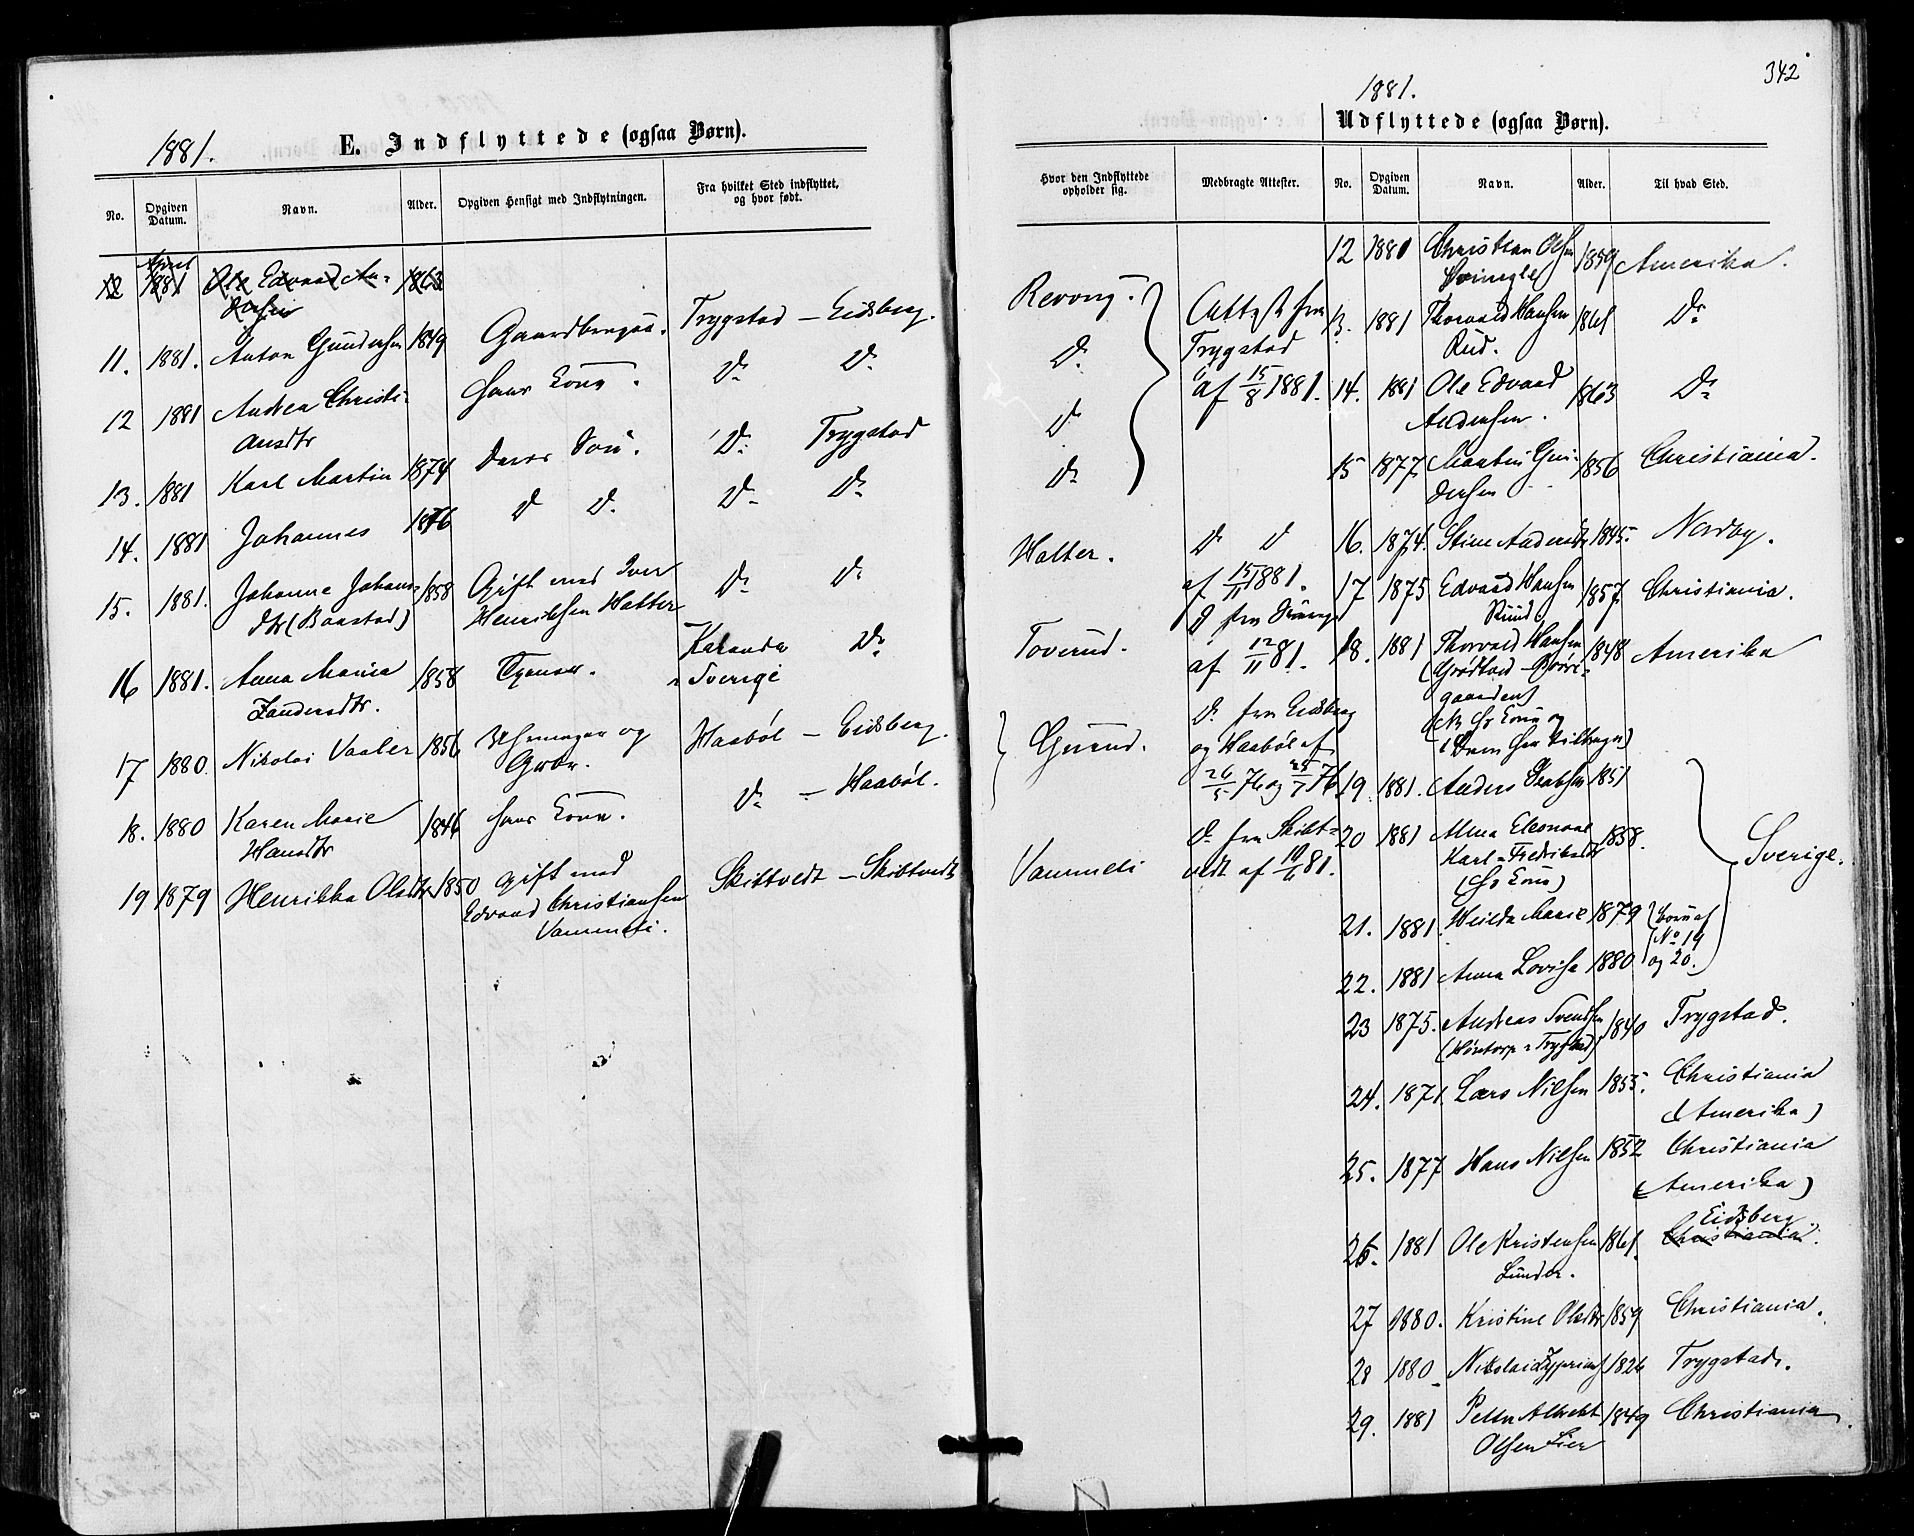 1881.
E. Indflyttede (ogsaa Børn).
No.
Opgiven Datum.
Navn.
Alder.
Opgiven Hensigt med Indflytningen.
Fra hvilket Sted indflyttet, og hvor født.
12 April 1881 Ole Edvard An- 1863
dersen
11. 1881. Anton Gundersen 1849 Gaardbruger. Trygstad – Eidsberg.
12 1881 Andrea Christi- hans Kone. Do Do
ansdtr
13. 1881 Karl Martin 1874 Deres Søn. Do Trygstad
14. 1881 Johannes 1876 D D. Do Do
15. 1881. Johanne Johans- 1858 Gift med Iver Do Do
dtr (Baastad) Henriksen Halter
16 1881. Anna Maria 1858 Tjener. Do
Zandersdtr. i Sverige
17 1880. Nikolai Vaaler 1856 og Haabøl – Eidsberg.
18. 1880 Karen Marie 1846 hans Kone. Do – Haabøl.
Hansdtr
19 1879 Henrikka Olsdtr 1850 gift med Skibtvedt – Skibtvedt
Edvard Christiansen
Vammeli.
342
1881.
Udflyttede (ogsaa Børn).
Hvor den Indflyttede opholder sig.
Medbragte Attester.
No.
Opgiven Datum.
Navn.
Alder.
Til hvad Sted.
Revoug.
D.
D
Do
Attest fra
Trygstad
af 15/8 1881.
Halter.
D D
af 15/11 1881.
Toverud.
D fra
af 12/11 81.
Gurud.
D. fra Eidsberg
og Haabøl af
26/5 76 og 25/7 76.
Vammeli
D. fra Skibt-
vedt af 10/11 81.
12 1881 Christian Olsen 1859 Amerika.
13. 1881 Thorvald Hansen 1861 Do
Rud.
14. 1881 Ole Edvard 1863 Do
Andersen.
15 1877. Martin Gun- 1856 Christiania.
dersen
16. 1874. Stine Andersdtr 1845. Nordby.
17 1875 Edvard Hansen 1857. Christiania.
Ruud
18. 1881 Thorvald Hansen 1848 Amerika
gaarden)
19 1881. Anders 1851
20 1881 Alma Eleonore 1858.
Karl-Fredriksdtr
(hs Kone)
Sverige.
21. 1881. Hilda Marie 1879 (børn af
No 19
22. 1881 Anna Lovise 1880 og 20.
23 1875. Andreas Svendsen 1840 Trygstad.
24. 1871. Lars Nilsen 1855. Christiania
(Amerika)
25. 1877 Hans Nilsen 1852 Christiania
(Amerika)
Eidsberg
26. 1881 Ole Kristensen 1861. Christiania.
Lunder.
27 1880. Kristine Olsdtr 1859 Christiania.
28 1880 Nikolai 1826 Trygstad.
29. 1881 Peder Albrekt 1849 Christiania.
Olsen Lier